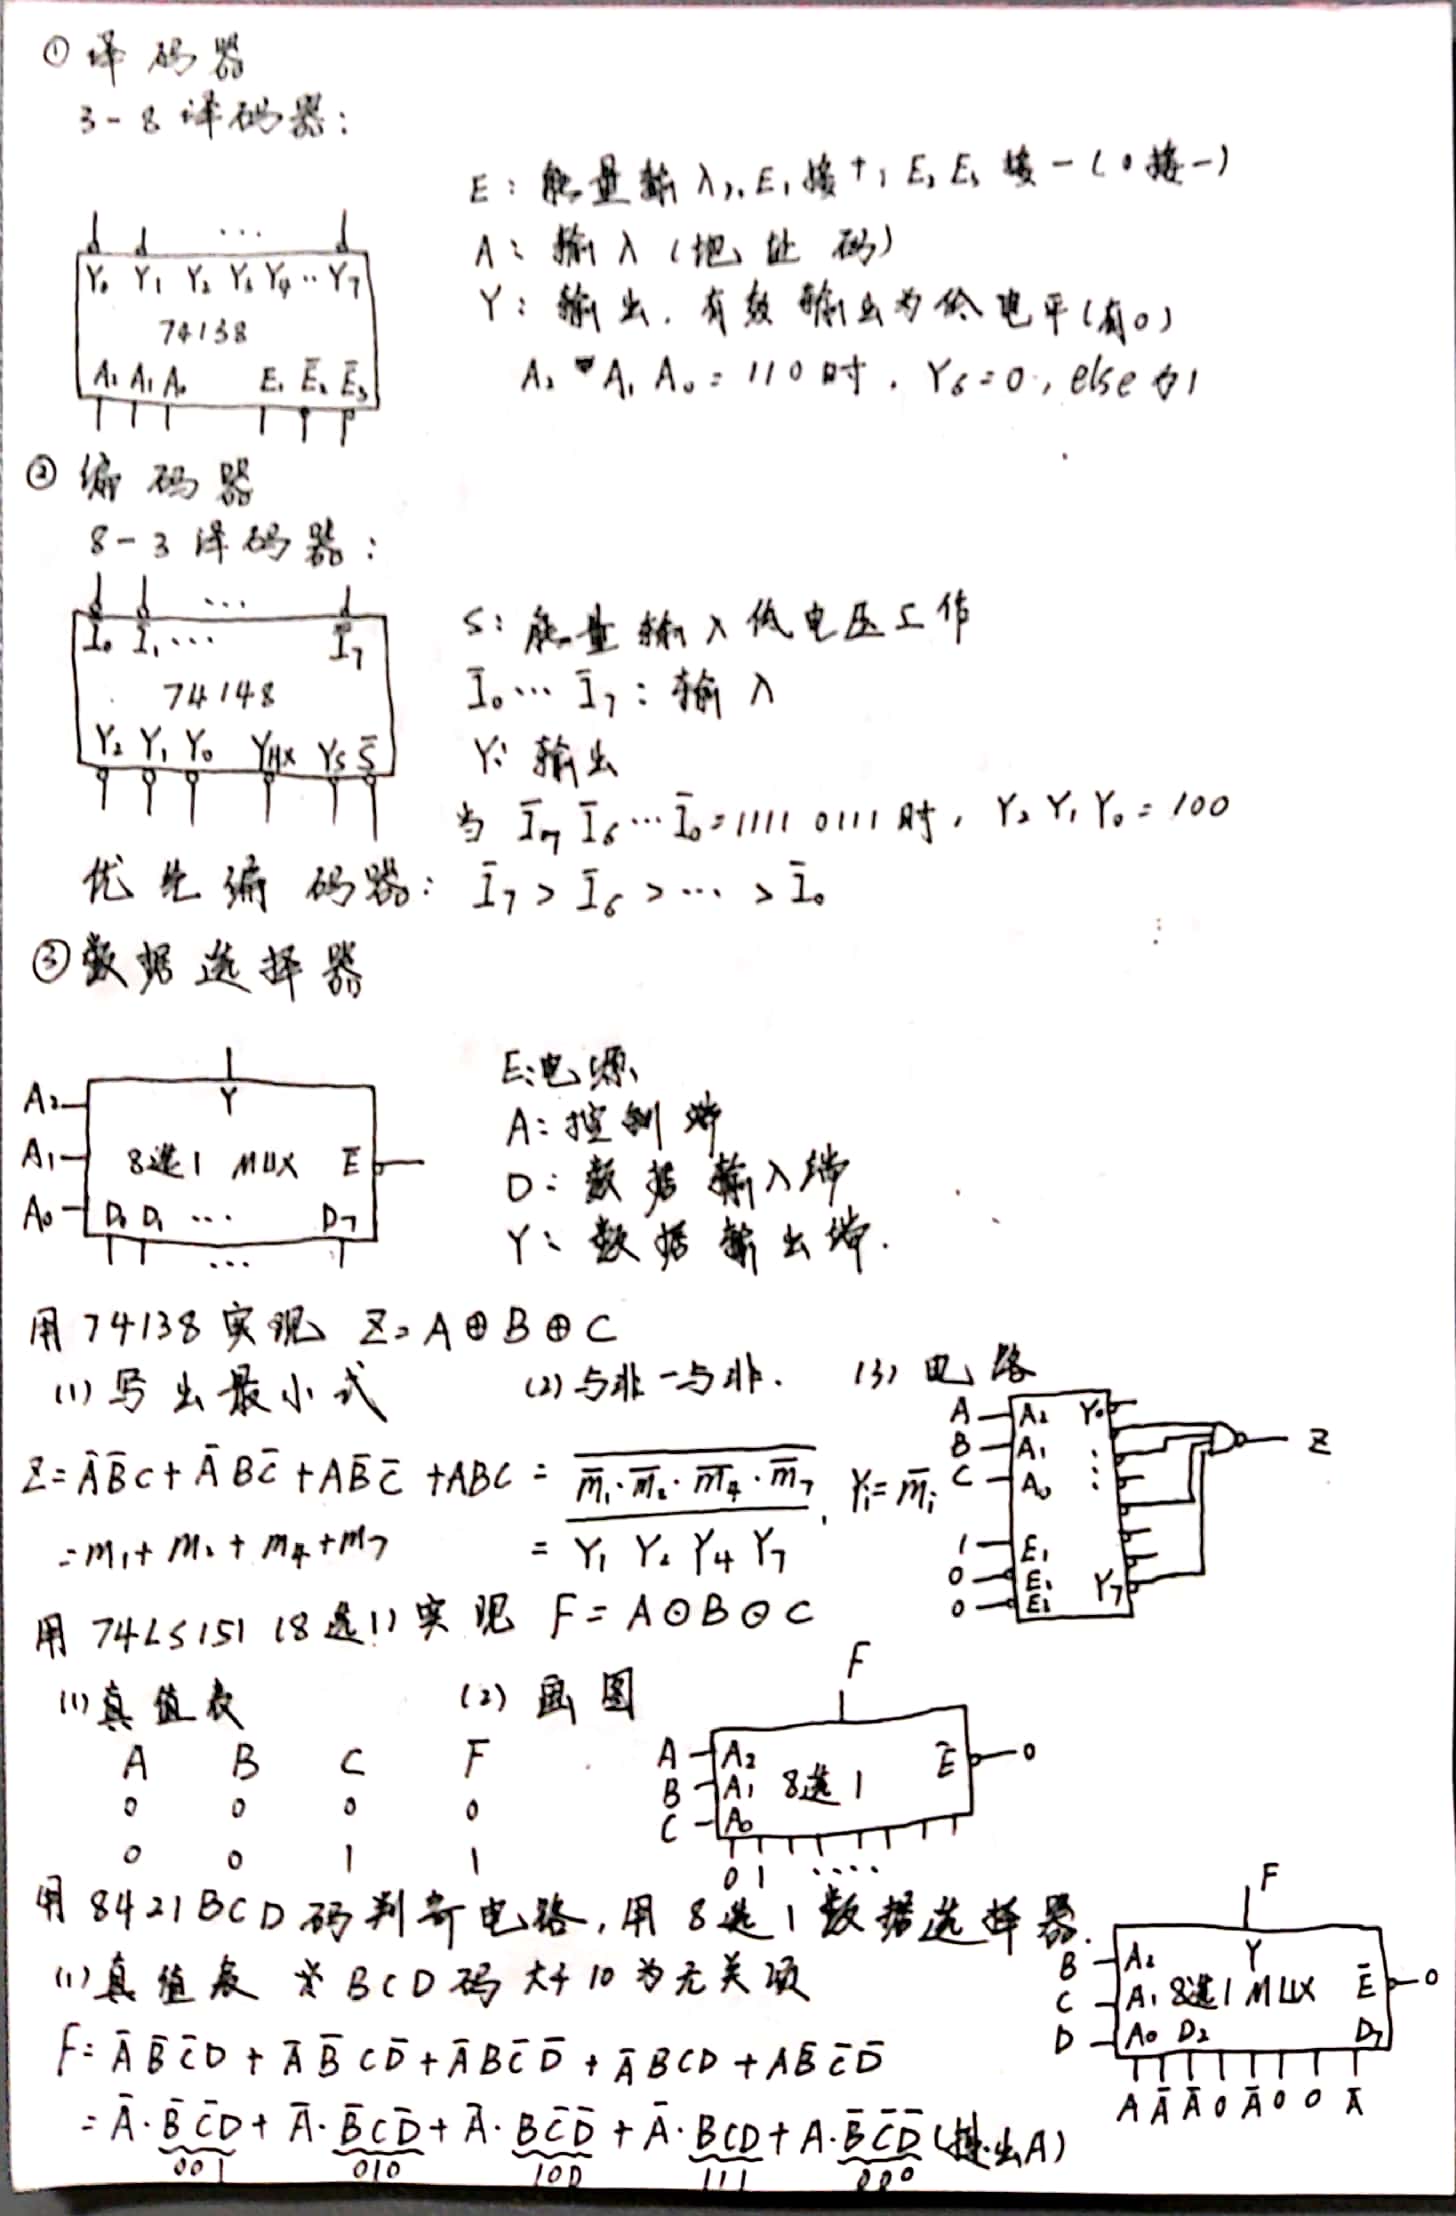 ① 译码器
3-8 译码器:
Y₀ Y₁ Y₂ Y₃ Y₄ ·· Y₇
74138
A₂ A₁ A₀ E₁ E̅₂ E̅₃
E: 能量输入, E₁接+; E₂ E₃ 接-(0接-)
A: 输入(地址码)
Y: 输出. 有效输出为低电平(有0)
A₂ A₁ A₀ = 110时, Y₆=0, else为1
② 编码器
8-3 译码器:
I̅₀ I̅₁ ··· I̅₇
74148
Y₂ Y₁ Y₀ Y_EX Y_S S̅
S: 能量输入低电压工作
I̅₀ ··· I̅₇: 输入
Y: 输出
当 I̅₇ I̅₆ ··· I̅₀ = 1111 0111 时, Y₂ Y₁ Y₀ = 100
优先编码器: I̅₇ > I̅₆ > ··· > I̅₀
③ 数据选择器
A₂ A₁ A₀
Y
8选1 MUX E̅
D₀ D₁ ··· D₇
E: 电源
A: 控制端
D: 数据输入端
Y: 数据输出端.
用 74138 实现 Z=A⊕B⊕C
(1) 写出最小式 (2) 与非-与非. (3) 电路
Z = A̅B̅C + A̅BC̅ + AB̅C̅ + ABC = \overline{m̅₁·m̅₂·m̅₄·m̅₇}, Yᵢ = m̅ᵢ
= m₁ + m₂ + m₄ + m₇ = \overline{Y₁ Y₂ Y₄ Y₇}
A A₂ Y₀ Z
B A₁
C A₀
1 E₁
0 E₂ Y₇
0 E₂
用 74LS151 (8选1) 实现 F = A⊙B⊙C
(1) 真值表 (2) 画图
A B C F
0 0 0 0
0 0 1 1
F
A A₂ E̅ 0
B A₁ 8选1
C A₀
0 1 ····
用 8421BCD 码判奇电路, 用 8选1 数据选择器.
(1) 真值表 ※ BCD码 大于10为无关项
F = A̅B̅C̅D + A̅B̅CD̅ + A̅BC̅D̅ + A̅BCD + AB̅C̅D̅
= A̅·B̅C̅D + A̅·B̅CD̅ + A̅·BC̅D̅ + A̅·BCD + A·B̅C̅D̅ (提出A)
001 010 100 111 000
F
B A₂ Y
C A₁ 8选1 MUX E̅ 0
D A₀ D₂ D₇
A A̅ A̅ 0 A̅ 0 0 A̅